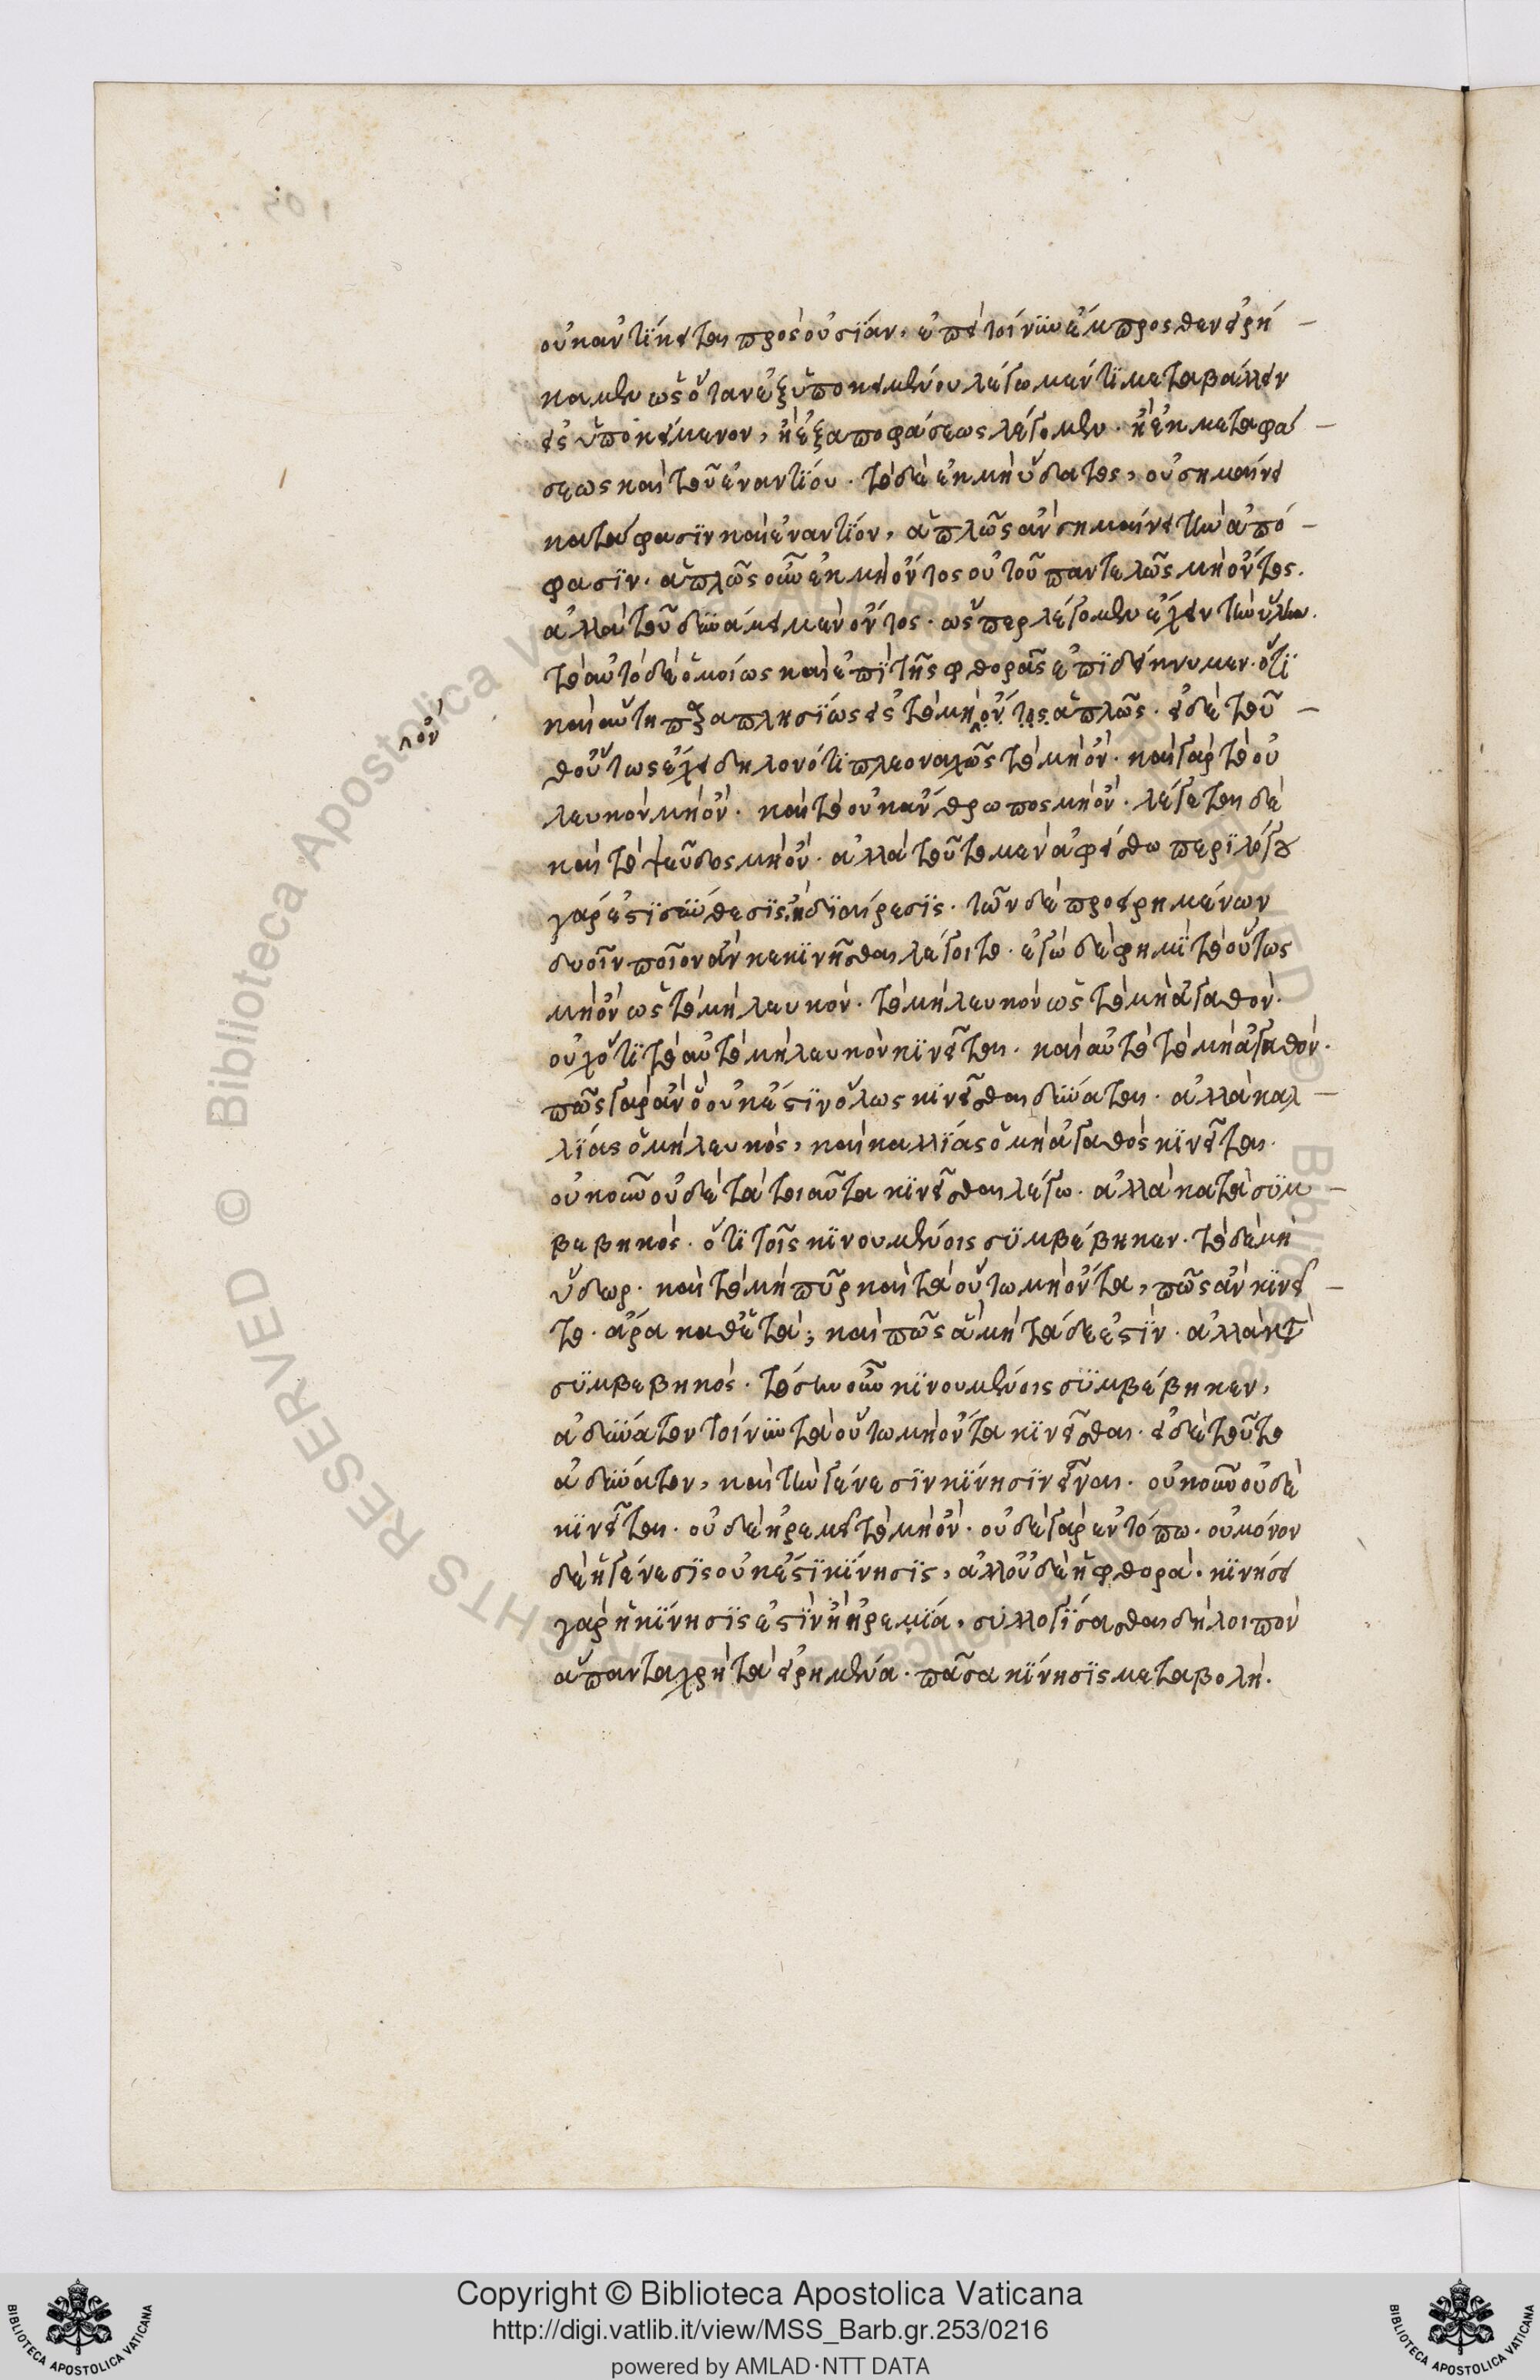 οὐκ ἀντίκειται πρὸς οὐσίαν. ἐπεὶ τοίνυν ἔμπροσθεν εἰρή-
καμεν ὡς ὅταν ἐξ ὑποκειμένου λέγωμέν τι μεταβάλλειν
εἰς ὑποκείμενον, ἢ ἐξ ἀποφάσεως λέγομεν. ἢ ἐκ καταφά-
σεως καὶ τοῦ ἐναντίου. τὸ δὲ ἐκ μὴ ὕδατος, οὐ σημαίνει
κατάφασιν καὶ ἐναντίον, ἁπλῶς ἂν σημαίνει τὴν ἀπό-
φασιν. ἁπλῶς οὖν ἐκ μὴ ὄντος οὐ τοῦ παντελῶς μὴ ὄντος.
ἀλλὰ τοῦ δυνάμει μὲν ὄντος. ὥσπερ λέγομεν ἔχειν τὴν ὕλην.
τὸ αὐτὸ δὲ ὁμοίως καὶ ἐπὶ τῆς φθορᾶς ἐπιδείκνυμεν. ὅτι
καὶ αὕτη παραπλησίως εἰς τὸ μὴ ὄντος ἁπλῶς. εἰ δὲ τοῦ-
ὂν
θ οὕτως ἔχει δηλονότι πλεοναχῶς τὸ μὴ ὄν. καὶ γὰρ τὸ οὐ
λευκὸν μὴ ὄν. καὶ τὸ οὐκ ἄνθρωπος μὴ ὄν. λέγεται δὲ
καὶ τὸ ψεῦδος μὴ ὄν. ἀλλὰ τοῦτο μὲν ἀφείσθω περὶ λόγου
γάρ ἐστι σύνθεσις ἢ διαίρεσις. τῶν δὲ προειρημένων
δυοῖν ποῖον ἂν κεκινῆσθαι λέγοιτο. ἐγὼ δέ φημι τὸ οὕτως
μὴ ὂν ὡς τὸ μὴ λευκόν. τὸ μὴ λευκὸν ὡς τὸ μὴ ἀγαθόν.
οὐχ ὅτι τὸ αὐτὸ μὴ λευκὸν κινεῖται. καὶ αὐτὸ τὸ μὴ ἀγαθόν.
πῶς γὰρ ἂν ὃ οὐκ ἔστιν ὅλως κινεῖσθαι δύναται. ἀλλὰ καλ-
λίας ὁ μὴ λευκὸς, καὶ καλλίας ὁ μὴ ἀγαθὸς κινεῖται.
οὐκοῦν οὐδὲ τὰ τοιαῦτα κινεῖσθαι λέγω. ἀλλὰ κατὰ συμ-
βεβηκός. ὅτι τοῖς κινουμένοις συμβέβηκεν. τὸ δὲ μὴ
ὕδωρ. καὶ τὸ μὴ πῦρ καὶ τὰ οὕτω μὴ ὄντα, πῶς ἂν κινεῖ-
το. ἆρα καθ' αὑτά; καὶ πῶς ἃ μὴ τάδε ἐστίν. ἀλλὰ κατὰ
συμβεβηκός. τίσιν οὖν κινουμένοις συμβέβηκεν,
ἀδύνατον τοίνυν τὰ οὕτω μὴ ὄντα κινεῖσθαι. εἰ δὲ τοῦτο
ἀδύνατον, καὶ τὴν γένεσιν κίνησιν εἶναι. οὐκοῦν οὐδὲ
κινεῖται. οὐδὲ ἠρεμεῖ τὸ μὴ ὄν. οὐδὲ γὰρ ἐν τόπω. οὐ μόνον
δὲ ἡ γένεσις οὐκ ἔστι κίνησις, ἀλλ' οὐδὲ ἡ φθορά. κινήσει
γὰρ ἢ κίνησίς ἐστιν ἢ ἠρεμία. συλλογίσασθαι δὴ λοιπὸν
ἅπαντα χρὴ τὰ εἰρημένα. πᾶσα κίνησις μεταβολή.
Copyright © Biblioteca Apostolica Vaticana
http://digi.vatlib.it/view/MSS_Barb.gr.253/0216
powered by AMLAD·NTT DATA